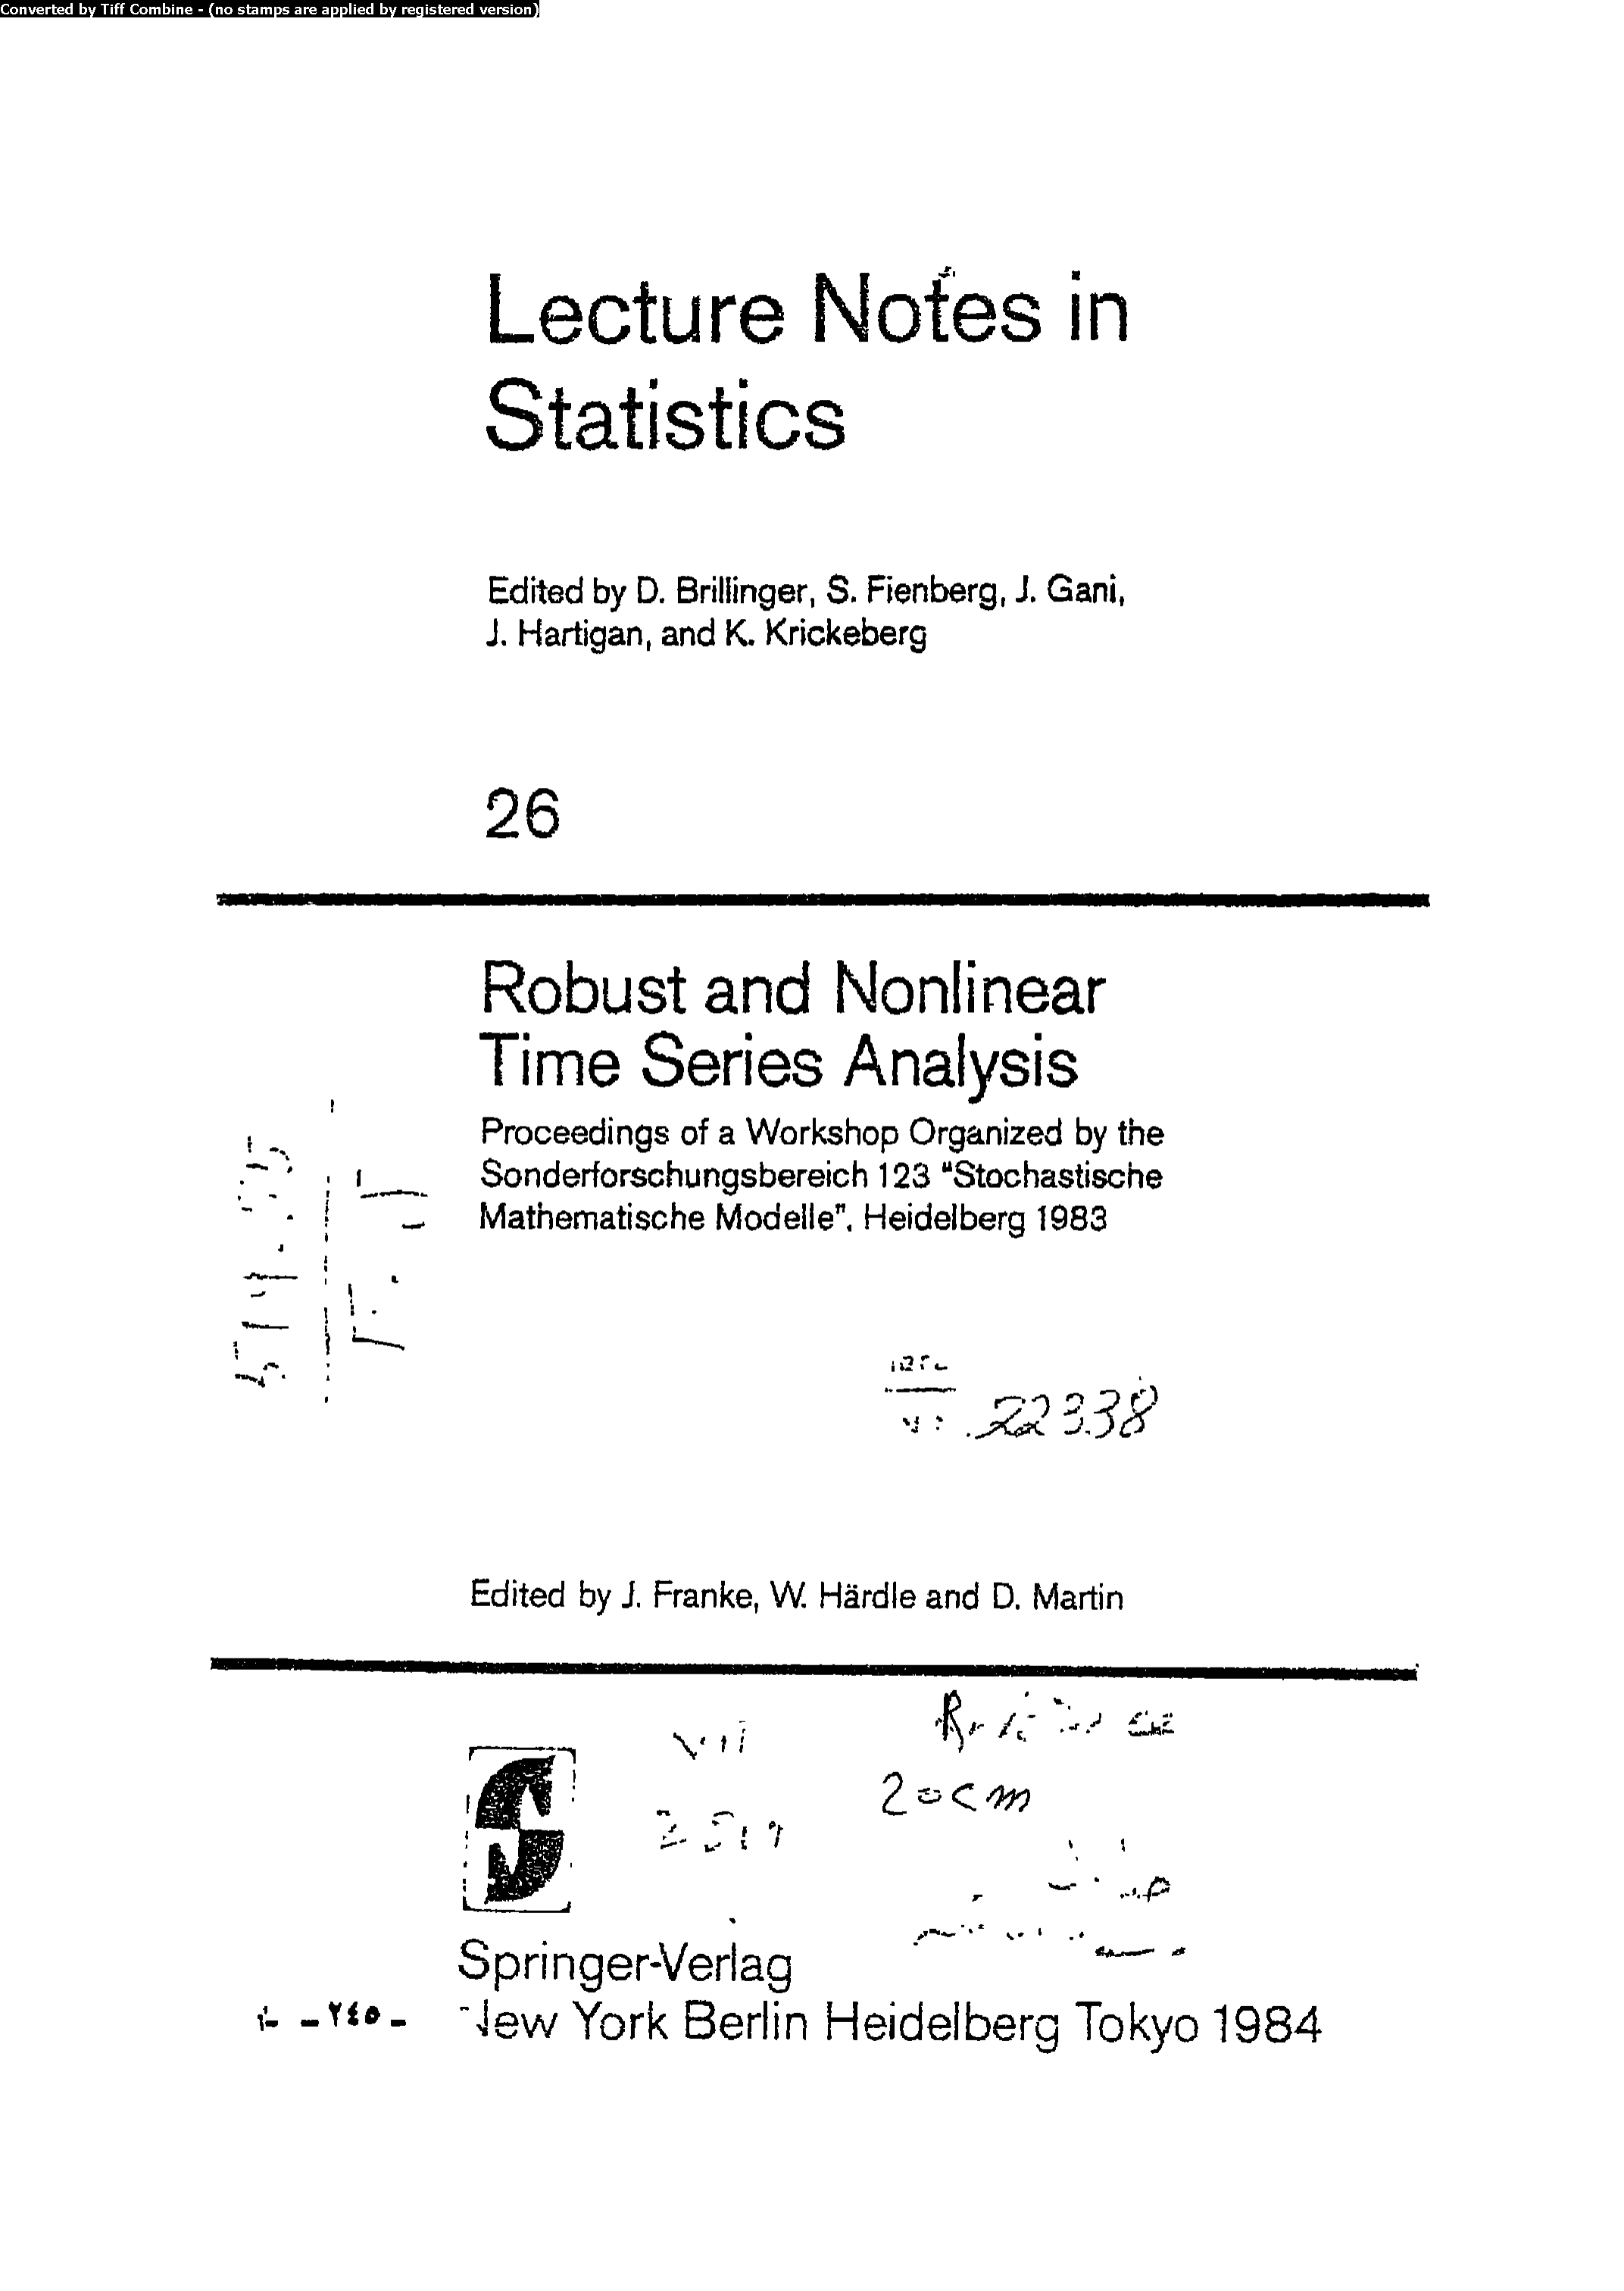 Converted by Tiff Combine - (no stamps are applied by registered version)
Lecture Notes in
Statistics
Edited by D. Brillinger, S. Fienberg, J. Gani,
J. Hartigan, and K. Krickeberg
26
Robust and Nonlinear
Time Series Analysis
Proceedings of a Workshop Organized by the
Sonderforschungsbereich 123 "Stochastische
Mathematische Modelle", Heidelberg 1983
22338
Edited by J. Franke, W. Härdle and D. Martin
20cm
Springer-Verlag
New York Berlin Heidelberg Tokyo 1984
- ٢٤٥ -